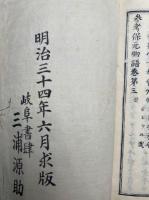 參考保元物語卷第三
明治三十四年六月求版
岐阜書肆
三浦源助